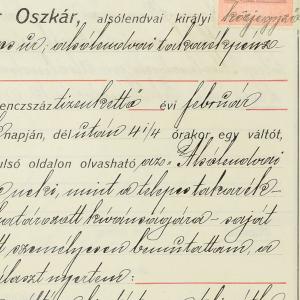 Oszkár, alsólendvai királyi közjegyző
úr, alsólendvai takarékpénz
enczszáz tizenkettő évi február
napján, délután 4 1/4 órakor egy váltót,
ulső oldalon olvasható az "Alsólendvai
neki, mint a telepes takarék-
határozott kívánságára - saját
személyesen bemutattam, a
álaszt nyertem: